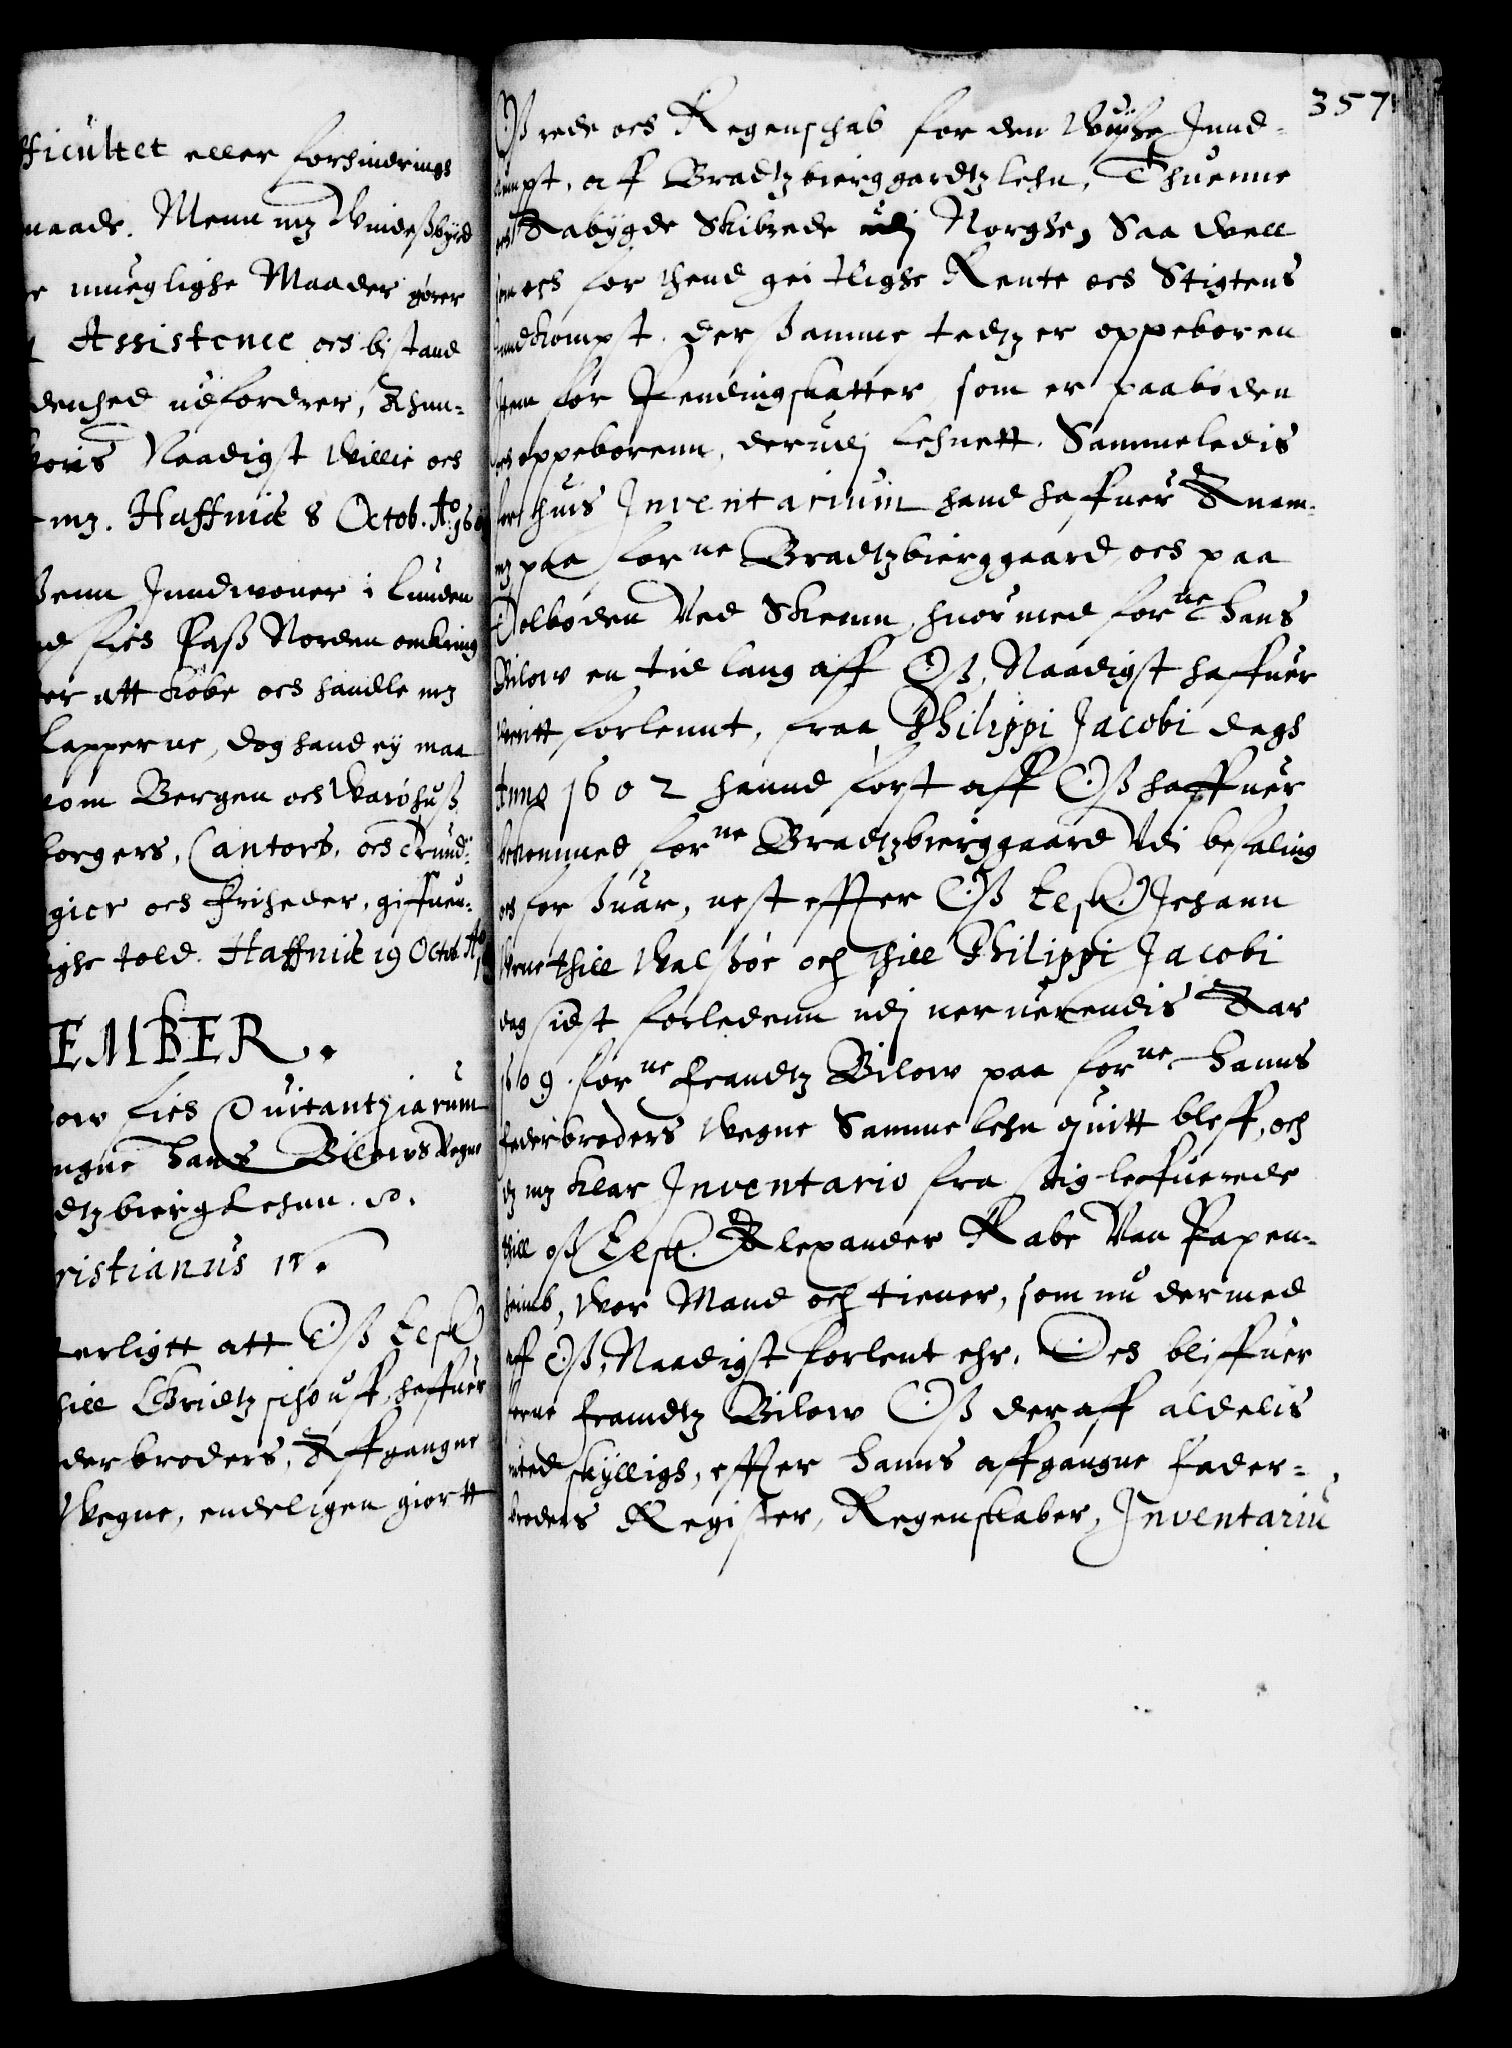 fficultet eller forhindrings
maade. Menn mz Windeßbyrd
r mueglighe Maader gører
Assistence och bistand
denhed udfordrer, Thun-
Naadigst Willie och
mz. Haffniæ 8 Octob. Ao 160
Jenn Jnndwoner i Lunden
fich Paß Norden omkring
er att købe och handle mz
Lapperne, dog hand ey maa
som Bergen och Wardhuß
borgers, Cantors, och Trund-
gier och friheder, giffuen-
ighe told. Haffniæ 19 Octob. Ao
EMBER.
ow fich Quitantziarum
ngne Hans Bilows Vegne
dtzbierg Lehnn.
ristianus IV.
terligtt att Oß Elsk
hill Gridtzschouff, haffuer
derbroders, Affgangne
Wegne, endeligen giortt
357
Oß rede och Regenschab for den Wisse Jnnd-
kumpst, aff Bradtzbierggardtz lehn, Thuenne
och Raabygde Skibrede udj Norghe, Saa well
som och for thend geistlighe Rente och Stigtens
Jnndkompst. der sammestedtz er oppeboren
Jtem for Pendingskatter, som er paaboden
och oppeborenn, derudj Lehnett. Sammeledis
for thuis Jnventarium hand haffuer Anam-
mz paa forne Bradtzbierggaard, och paa
Tolboden Ved Skeenn, huormed forne Hans
Bilow en tid lang aff Oß, Naadigst haffuer
veritt forlennt, fraa Philippi Jacobi dagh
Anno 1602 hannd først aff Oß haffuer
bekommed forne Bradtzbierggaard Udi befaling
och forsuar, nest effter Oß Elsk. Johann
thill Walsøe och thill Philippi Jacobi
dag sidst forledenn udj neruerendis Aar
1609. forne frandtz Bilow paa forne Hanns
faderbroders Wegne Samme lehn quitt bleff, och
dz mz klar Jnventario fra sig leffuerede
thill oß Elsk. Alexander Rabe Van Papen-
heimb, Wor Mand och tiener, som nu dermed
aff Oß, Naadigst forlent ehr, Des bliffuer
forne frandtz Bilow Oß deraff aldelis
inted skylligh, effter Hanns affgangne fader-
broders Register, Regenskaber, Jnventariu